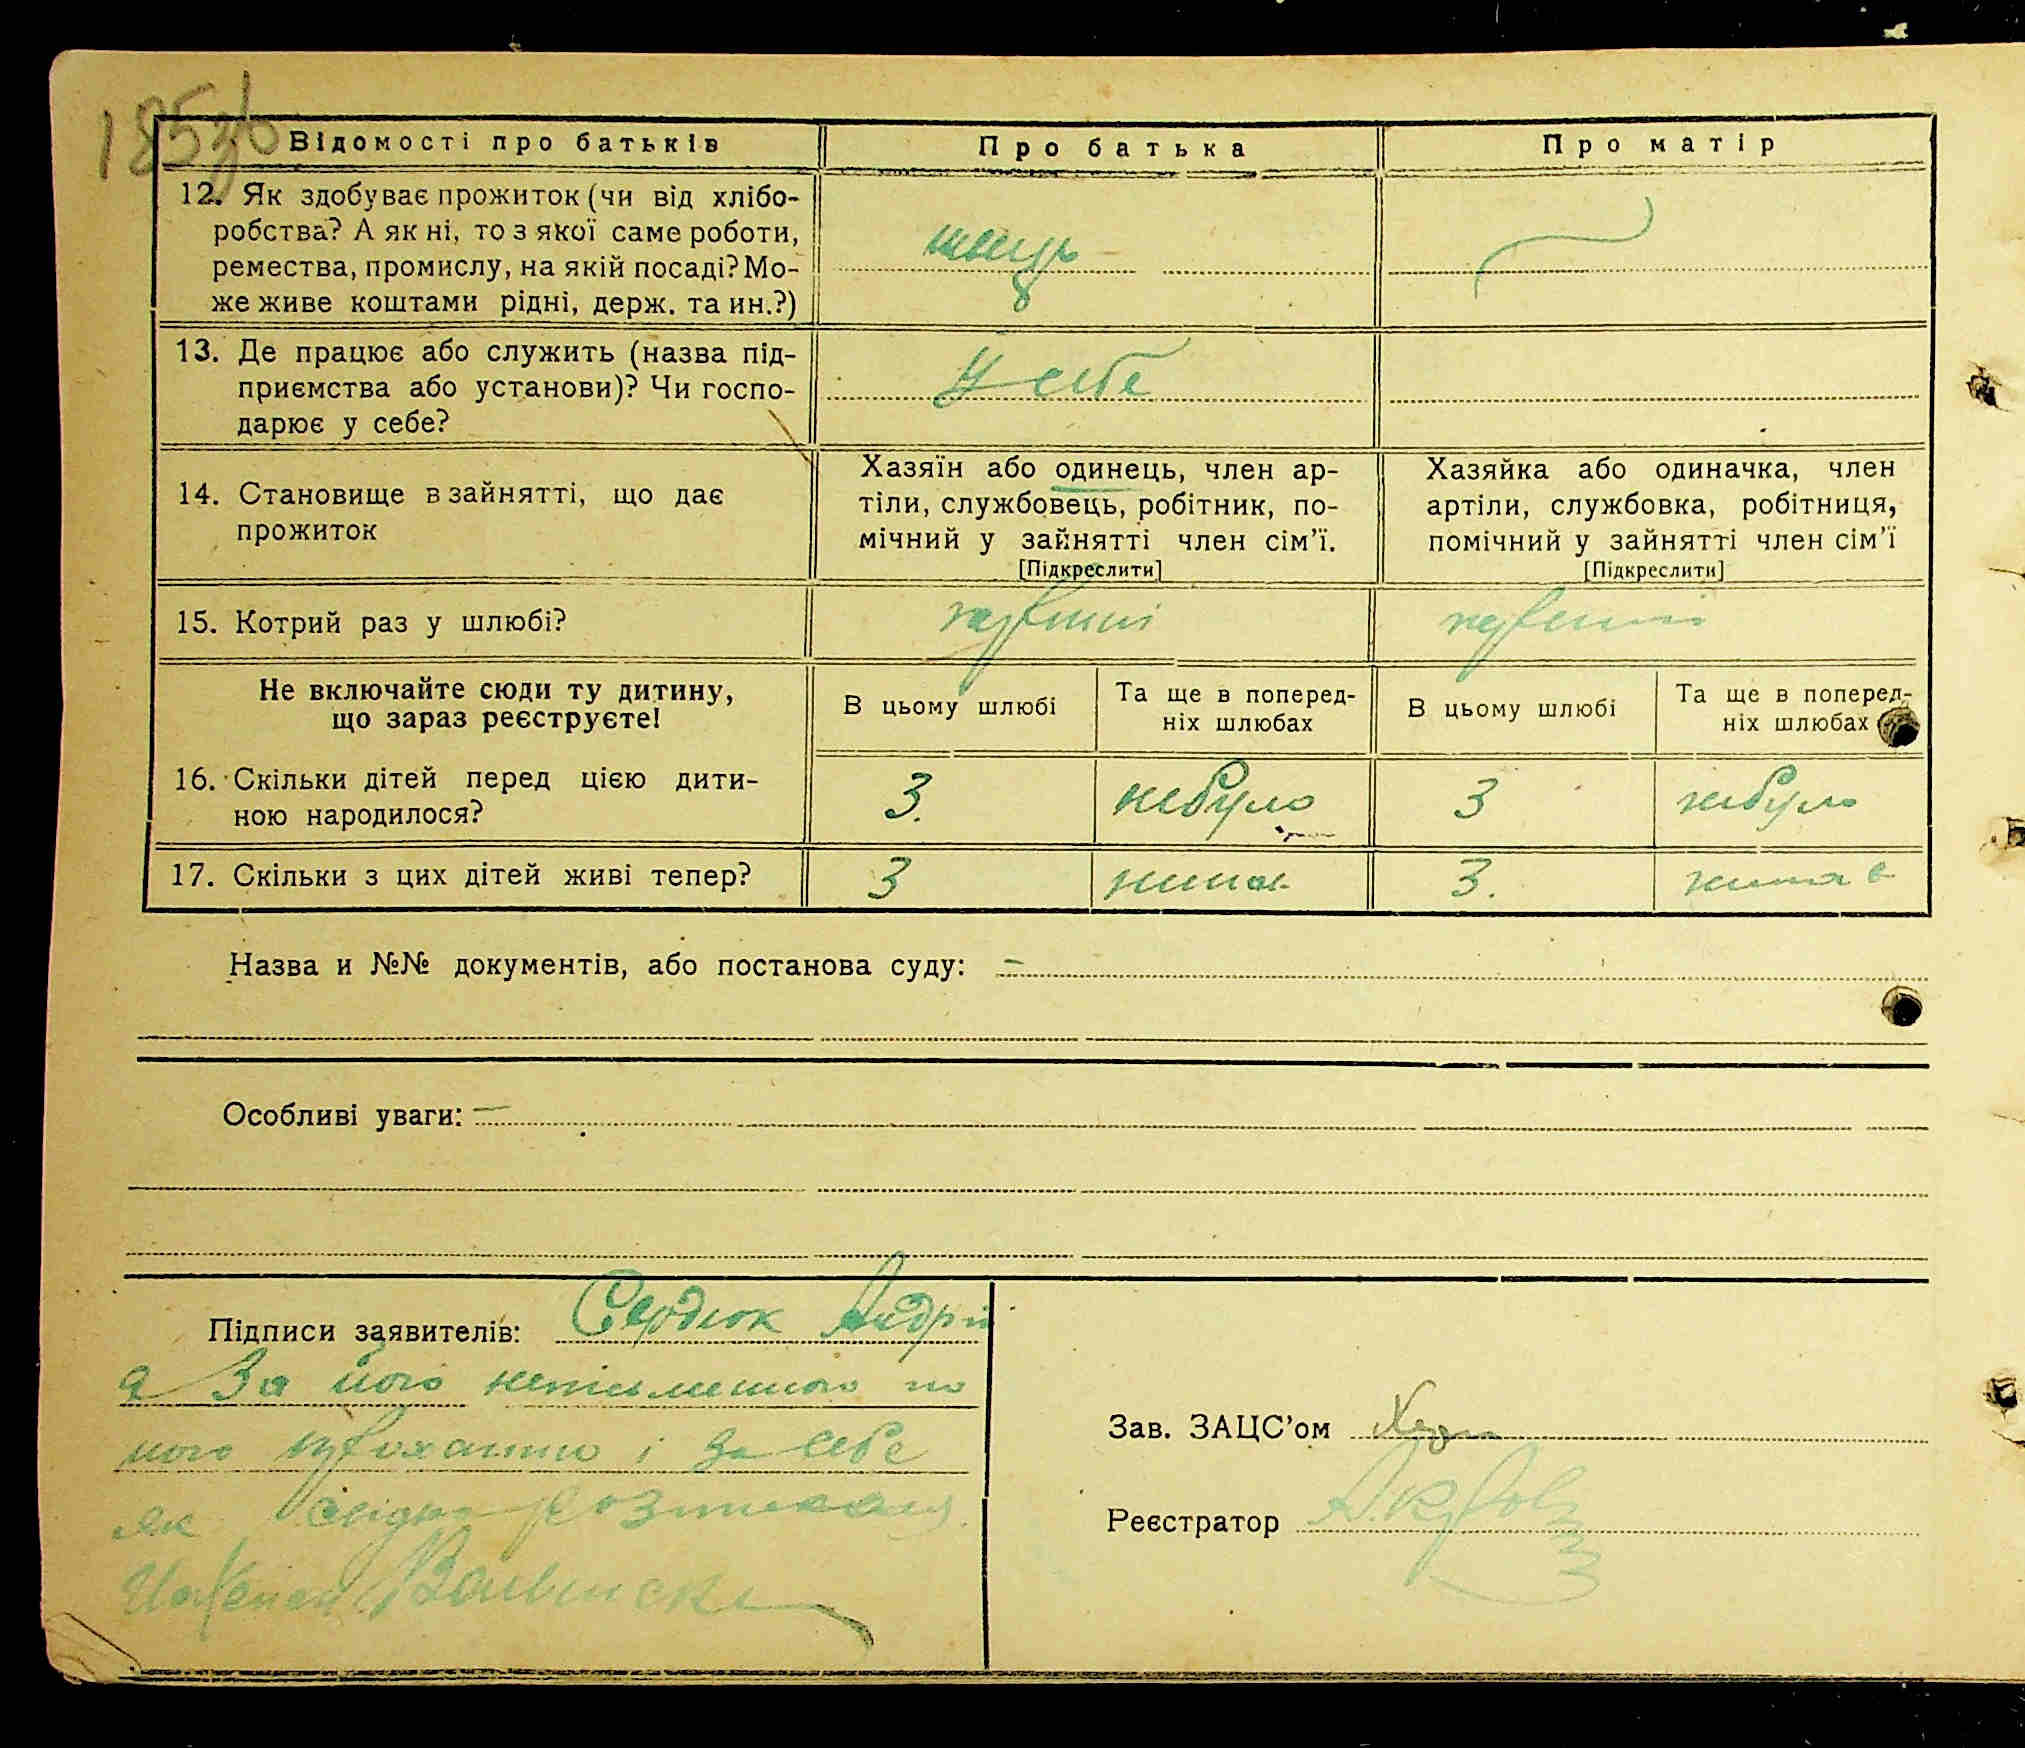 185зв
Відомості про батьків
Про батька
Про матір
12. Як здобуває прожиток (чи від хлібо-
робства? А як ні, то з якої саме роботи,
ремества, промислу, на якій посаді? Мо-
же живе коштами рідні, держ. та ин.?)
швець
13. Де працює або служить (назва під-
приємства або установи)? Чи госпо-
дарює у себе?
У себе
14. Становище в зайнятті, що дає
прожиток
Хазяїн або одинець, член ар-
тіли, службовець, робітник, по-
мічний у зайнятті член сім'ї.
[Підкреслити]
Хазяйка або одиначка, член
артіли, службовка, робітниця,
помічний у зайнятті член сім'ї
[Підкреслити]
15. Котрий раз у шлюбі?
первший
первший
Не включайте сюди ту дитину,
що зараз реєструєте!
В цьому шлюбі
Та ще в поперед-
ніх шлюбах
В цьому шлюбі
Та ще в поперед-
ніх шлюбах
16. Скільки дітей перед цією дити-
ною народилося?
3.
небуло
3
небуло
17. Скільки з цих дітей живі тепер?
3
нимає
3.
нимає
Назва и №№ документів, або постанова суду: –
Особливі уваги: –
Підписи заявителів: Сердюк Андрій
а За його неписьменного по
його проханню і за себе
як свідок розписався
Зав. ЗАЦС'ом
Реєстратор